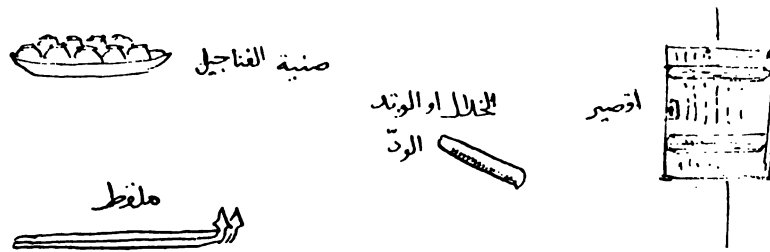 صنية الفناجيل
الخلال او الوتد
الودّ
اوصير
ملقط